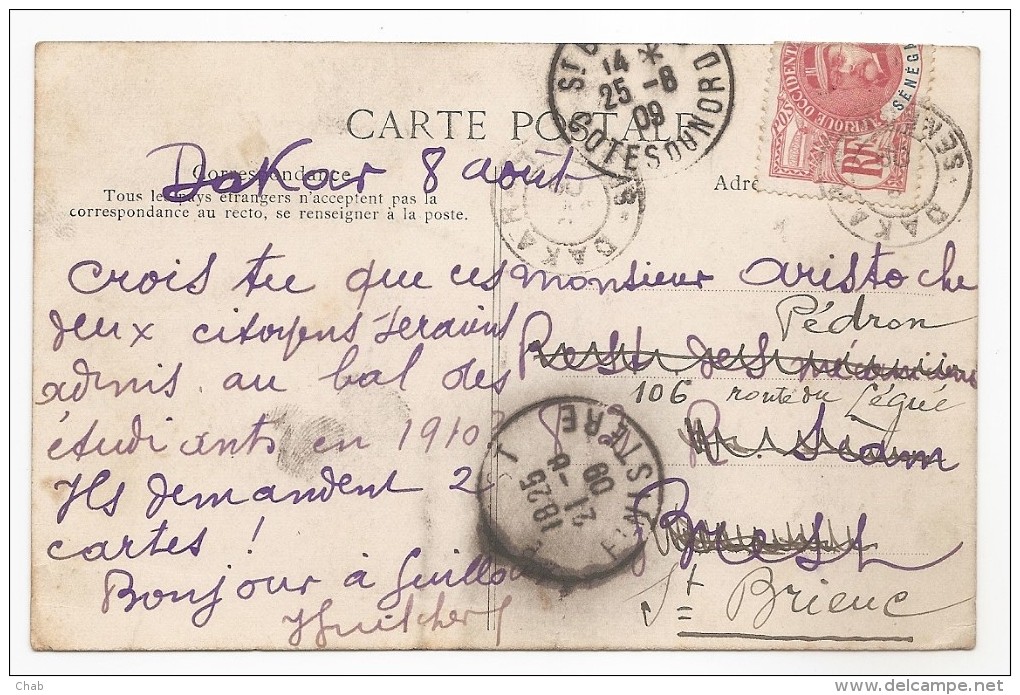 CARTE POSTALE
Correspondance
Dakar 8 août
Tous les pays étrangers n'acceptent pas la
correspondance au recto, se renseigner à la poste.
Adre
crois tu que ces
deux citoyens seraient
admis au bal des
étudiants en 1910?
Ils demandent 2
cartes!
Bonjour à Guillou
monsieur aristoche
Pédron
Rest. des mécaniciens
106 route du Légué
R. Siam
Brest
St Brieuc
14 *
25 -8
09
COTES DU NORD
SÉNÉGA
AFRIQUE OCCIDENT
RF
DAKAR
DAKAR
1825
21 -8
09
FINISTÈRE
Chab
www.delcampe.net